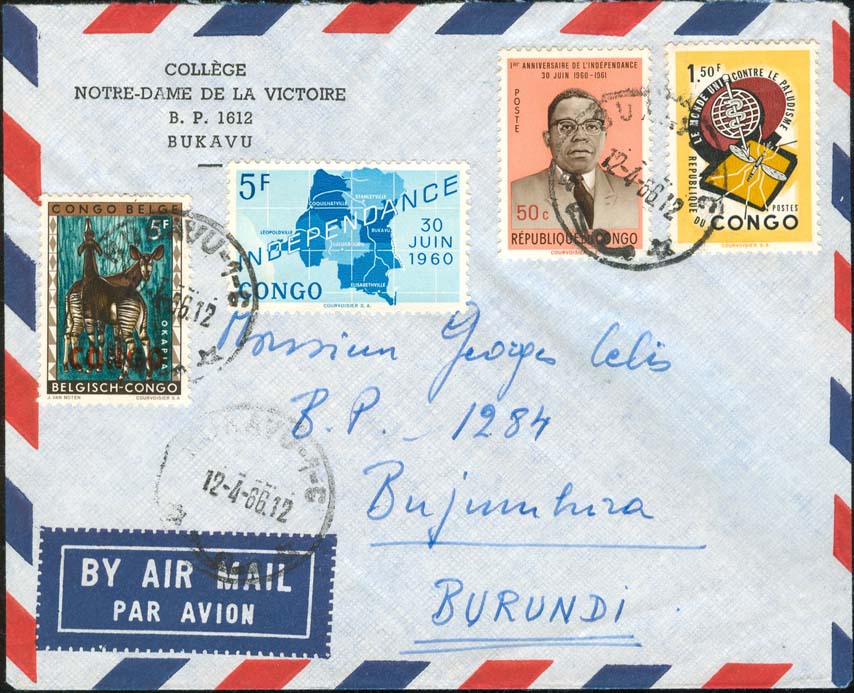 COLLÈGE
NOTRE-DAME DE LA VICTOIRE
B. P. 1612
BUKAVU
CONGO BELGE
5F
OKAPIA
CONGO
BELGISCH-CONGO
J. VAN NOTEN
COURVOISIER S.A.
5F
COQUILHATVILLE
STANLEYVILLE
LÉOPOLDVILLE
BUKAVU
LULUABOURG
ELISABETHVILLE
INDÉPENDANCE
30
JUIN
1960
CONGO
COURVOISIER S. A.
1ER ANNIVERSAIRE DE L'INDÉPENDANCE
30 JUIN 1960-1961
POSTE
50c
RÉPUBLIQUE DU CONGO
COURVOISIER
1.50F
LE MONDE UNI CONTRE LE PALUDISME
RÉPUBLIQUE
DU CONGO
POSTES
COURVOISIER S.A.
12-4-66.12
66.12
BUKAVU-1-E
12-4-66.12
Monsieur Georges Celis
B.P. 1284
Bujumbura
BURUNDI
BY AIR MAIL
PAR AVION